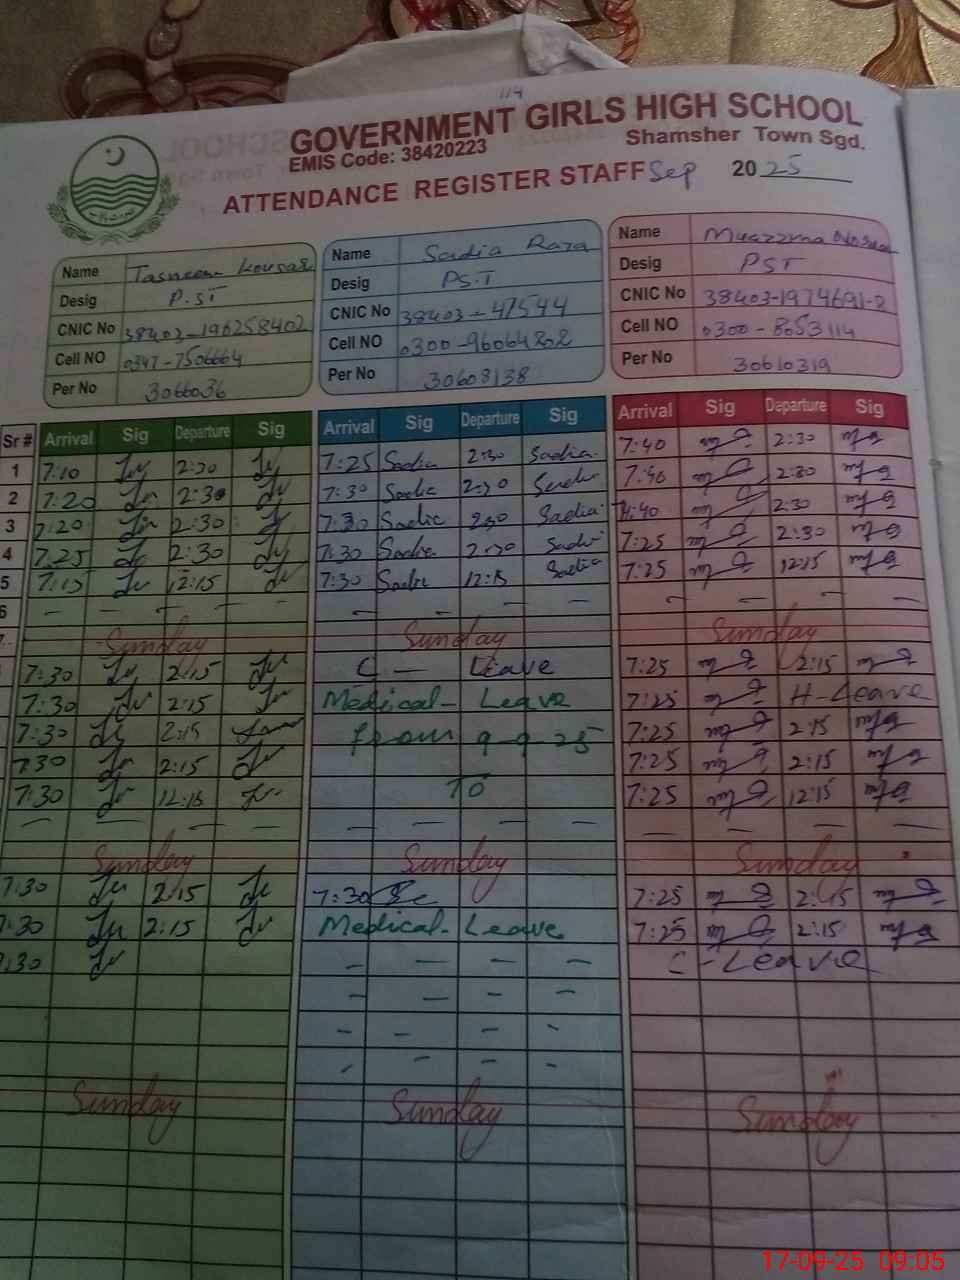 114
GOVERNMENT GIRLS HIGH SCHOOL
EMIS Code: 38420223 Shamsher Town Sgd.
ATTENDANCE REGISTER STAFF Sep 2025
Name Tasneem Kousar Name Sadia Raza Name Muazzma
Desig P.ST Desig PS.T Desig PST
CNIC No 38403-196258402 CNIC No 38403-47544 CNIC No 38403-1974691-8
Cell NO 0347-7506664 Cell NO 0300-96064802 Cell NO 0300-8053114
Per No 3066036 Per No 30608138 Per No 30610319
Sr # Arrival Sig Departure Sig Arrival Sig Departure Sig Arrival Sig Departure Sig
1 7:10 2:30 7:25 Sadia 2:30 Sadia 7:40 2:30
2 7:20 2:30 7:30 Sadia 2:30 Sadia 7:40 2:30
3 7:20 2:30 7:30 Sadia 2:30 Sadia 7:40 2:30
4 7:25 2:30 7:30 Sadia 2:30 Sadia 7:25 2:30
5 7:15 12:15 7:30 Sadia 12:15 Sadia 7:25 12:15
6 — — — — — — — — — — — —
7 Sunday Sunday Sunday
7:30 2:15 C — Leave 7:25 2:15
7:30 2:15 Medical - Leave 7:25 H-Leave
7:30 2:15 from 9 9 25 7:25 2:15
7:30 2:15 7:25 2:15
7:30 12:15 To 7:25 12:15
— — — — — — — — — — — —
Sunday Sunday Sunday
7:30 2:15 7:30 7:25 2:15
7:30 2:15 Medical - Leave 7:25 2:15
7:30 — — — — C - Leave
— — — —
— — — —
— — — —
Sunday Sunday Sunday
17-09-25 09:05